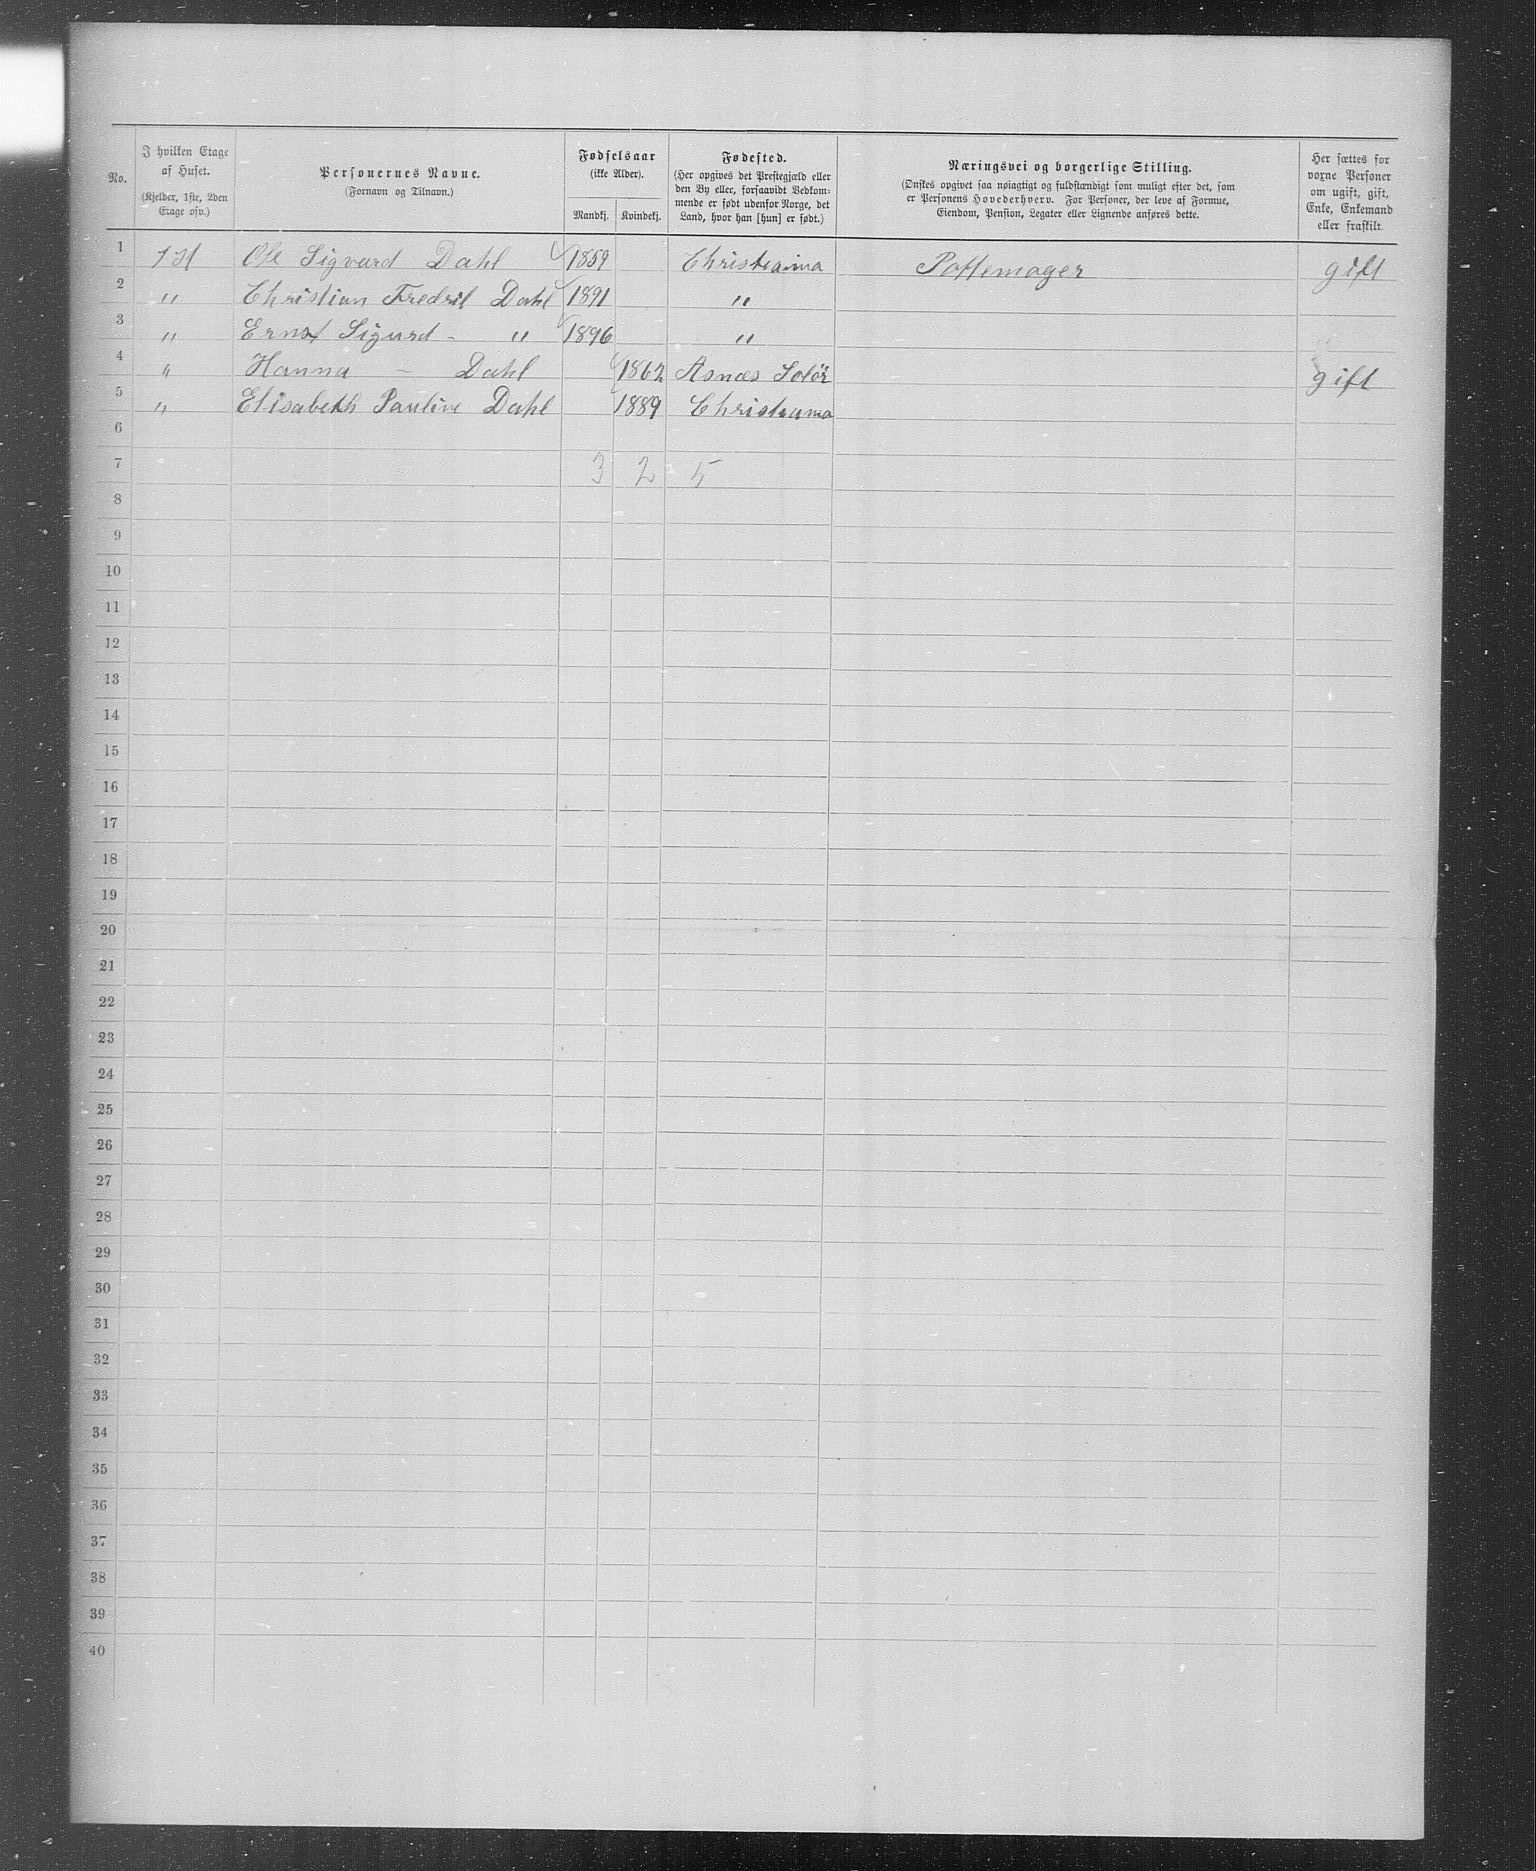 No.
I hvilken Etage af Huset. (Kjelder, 1ste, 2den Etage osv.)
Personernes Navne. (Fornavn og Tilnavn.)
Fødselsaar (ikke Alder). Mandkj. Kvindekj.
Fødested. (Her opgives det Prestegjæld eller den By eller, forsaavidt Vedkommende er født udenfor Norge, det Land, hvor han [hun] er født.)
Næringsvei og borgerlige Stilling. (Ønskes opgivet saa nøiagtigt og fuldstændigt som muligt efter det, som er Personens Hovederhverv. For Personer, der leve af Formue, Eiendom, Pension, Legater eller Lignende anføres dette.
Her sættes for voxne Personer om ugift, gift, Enke, Enkemand eller fraskilt.
1 1st Ole Sigvard Dahl 1859 Christiania Pottemager gift
2 " Christian Fredrik Dahl 1891 "
3 " Ernst Sigurd - " 1896 "
4 " Hanna - Dahl 1862 Asnæs Solör gift
5 " Elisabeth Pauline Dahl 1889 Christiania
6
7 3 2 5
8
9
10
11
12
13
14
15
16
17
18
19
20
21
22
23
24
25
26
27
28
29
30
31
32
33
34
35
36
37
38
39
40